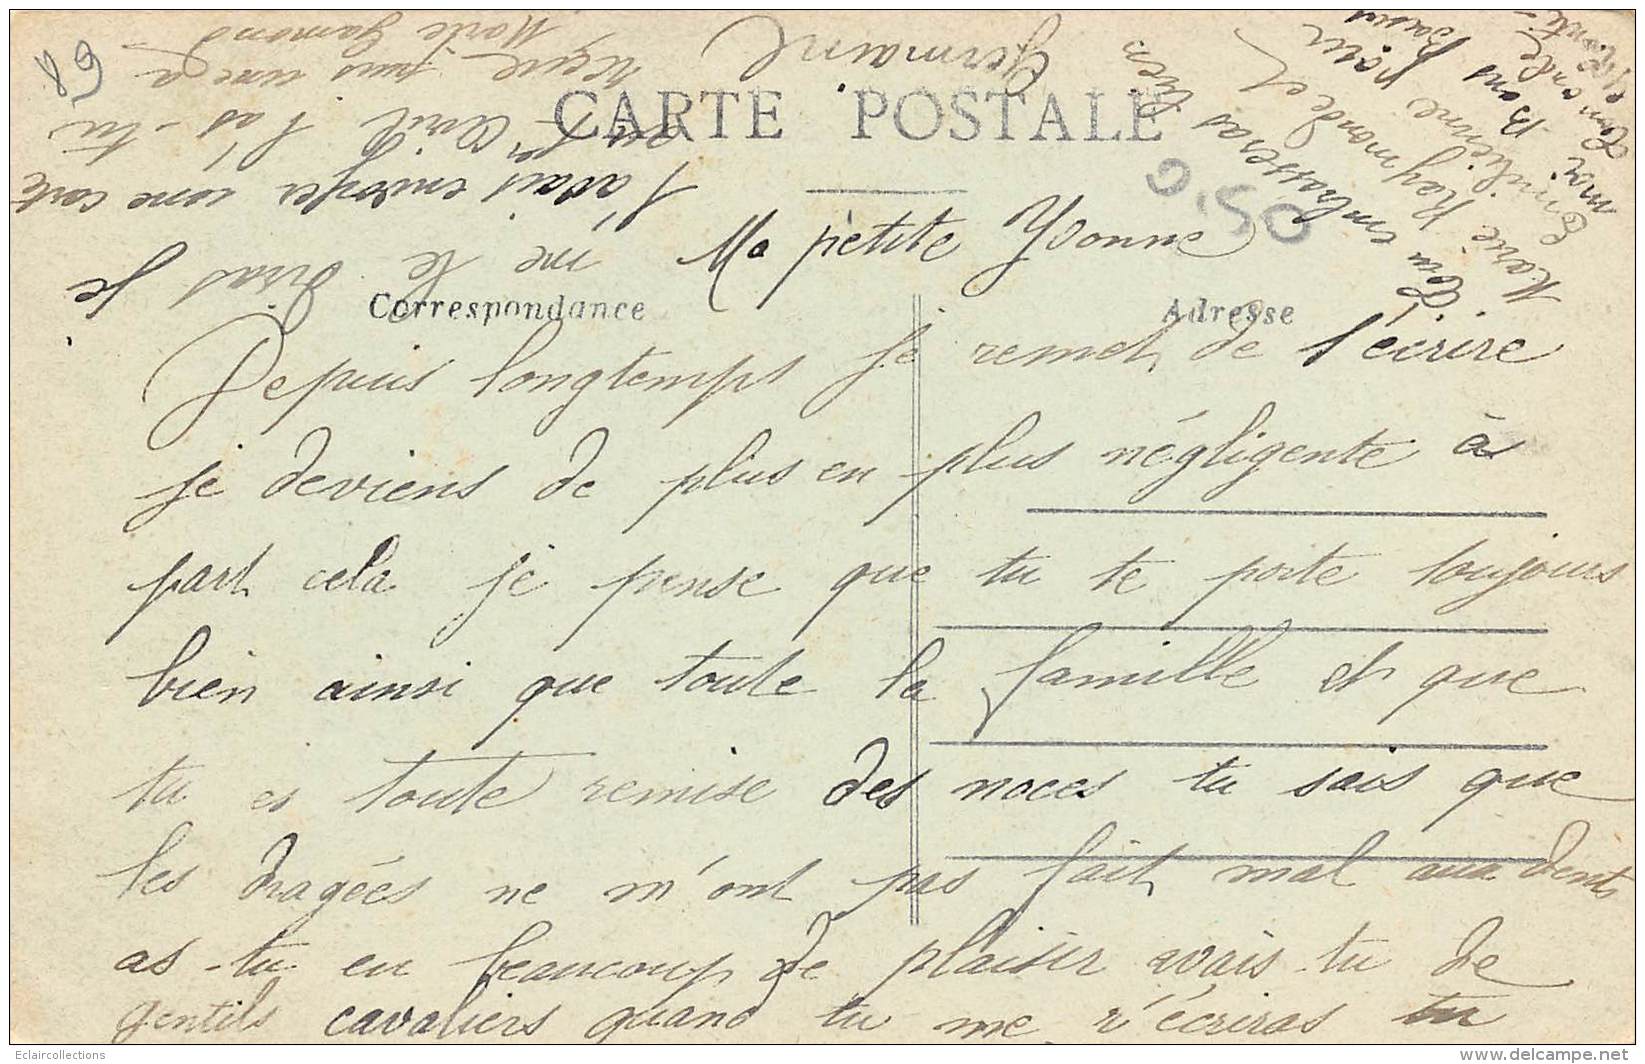 CARTE POSTALE
Correspondance
Adresse
89
0,50
Ma petite Yvonne
Depuis longtemps je remet de t'écrire
je deviens de plus en plus négligente à
part cela je pense que tu te porte toujours
bien ainsi que toute la famille et que
tu es toute remise des noces tu sais que
les dragées ne m'ont pas fait mal aux dents
as-tu eu beaucoup de plaisir avais-tu de
gentils cavaliers quand tu me r'écriras tu
me le diras Je
t'avais envoyer une carte
au 1er Avril l'as-tu
reçue puis une à
Marie
Germaine
Tu embrasseras bien
Marie Raymonde et
Emilienne pour
moi Bons Baisers
Eclaircollections
www.delcampe.net